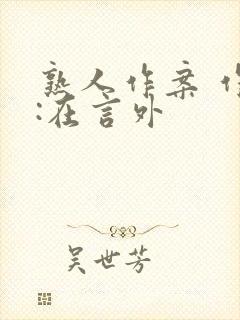 熟人作案 作
:在言外
吴世芳